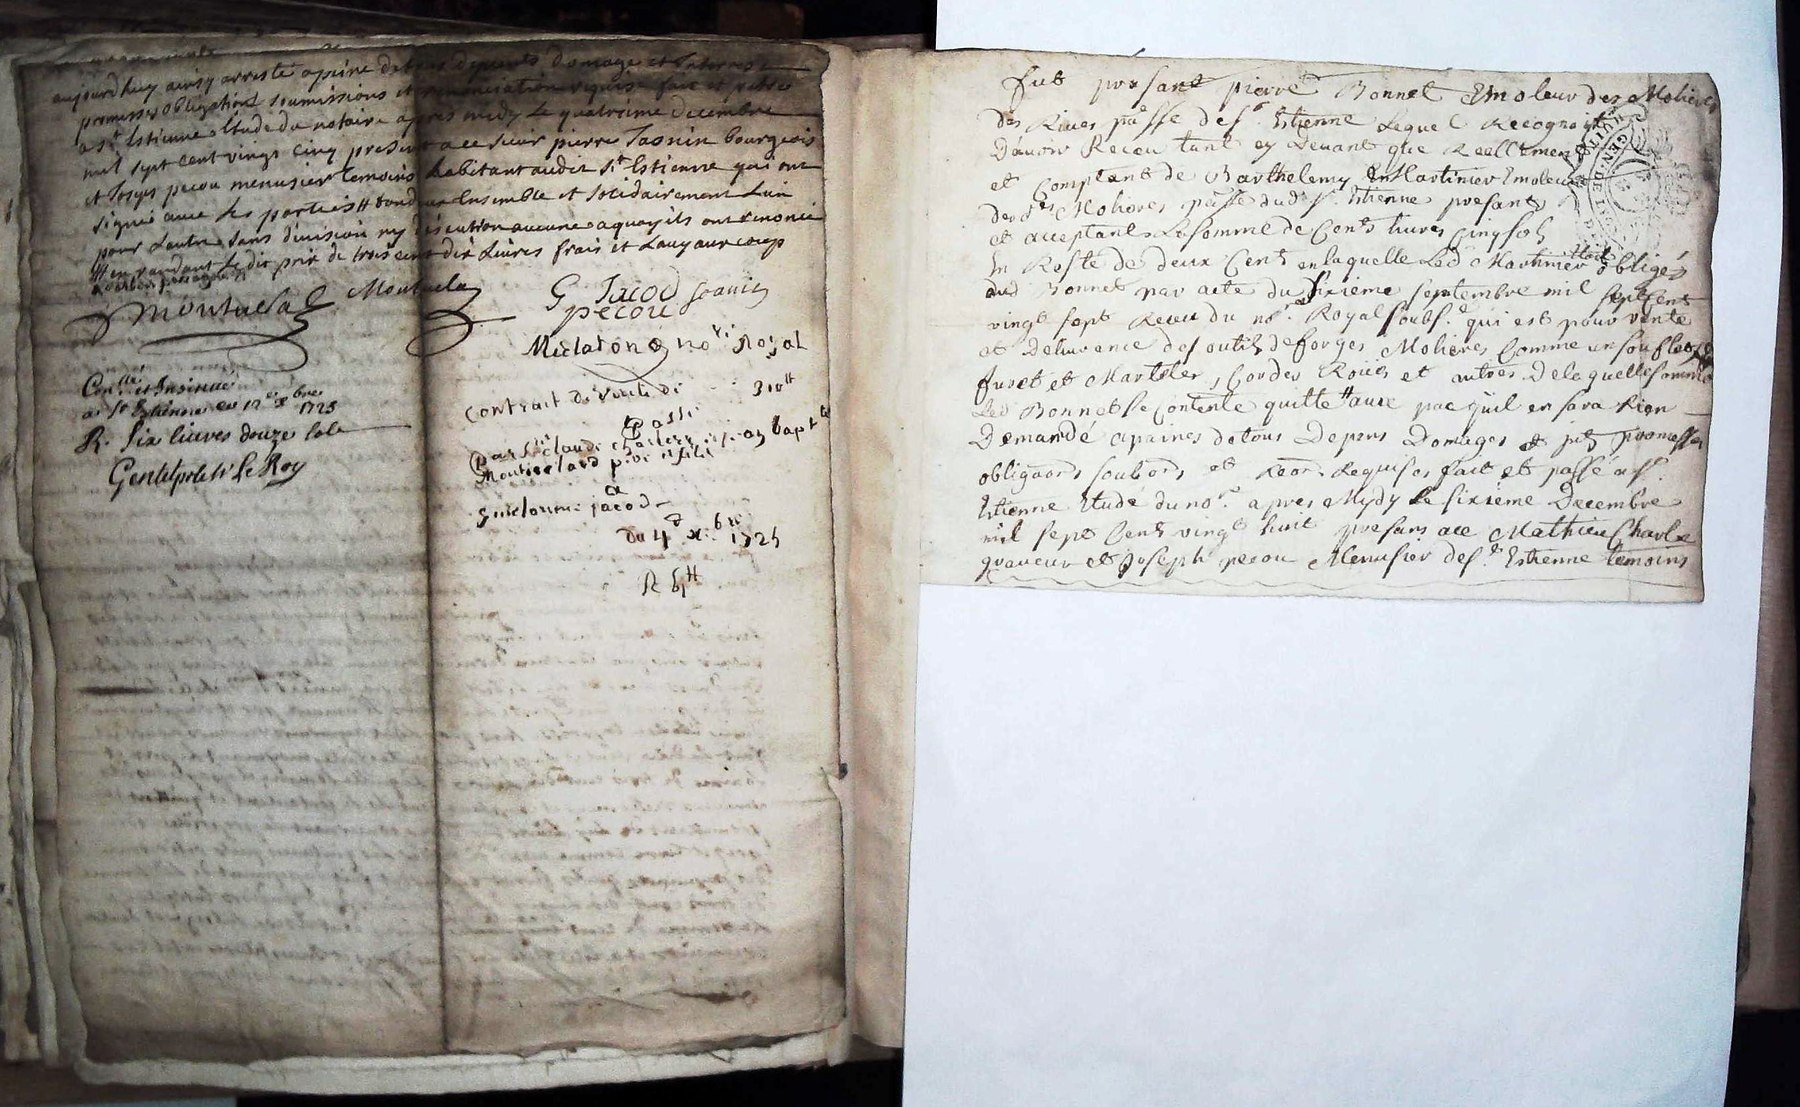 aujourdhuy ainsy arresté a peine de tous depents domage et Interes
promisses obligations soumissions et renonciation requis fait et passé
a St Estienne estude du notaire apres midy le quatrieme decembre
mil sept cent vingt cinq presents a ce sieur pierre Jaonin bourgeois
et Josep pecou menusier temoins habitant audit St Estienne qui ont
signé avec les parties # ensemble et solidairement l'un
pour l'autre sans division ny discution aucune a quoy ils ont renoncé
# en randant le dit prix de trois cent dix livres frais et
Montuclat Montucla G Jacod Joanin
pecou
Mielaton no.re Royal
Conllé et Insinué
a St Estienne le 12e xbre
1725
R. Six livres douze sols
Gentilpoleti Le Roy
Contrat de vente de 310 tt
passé
par Sr Claude Charles et jean bapte
pere et fils
a
guillaume jacod
du 4e xbre 1725
R 6 tt
fut présant pierre Bonnet Emoleur des Molières
des Rives passe de St Estienne Lequel Recognoit
Davoir Receu tant cy Devant que Réellement
et Comptant de Barthelemy Martinier Emoleur
des Molieres passe dud St Estienne presant
et acceptant La somme de Cent livres cinq sols
In Reste de deux Cent en laquelle Led Martinier Etoit obligé
aud Bonnet par acte du sixieme septembre mil sept Cent
vingt sept Receu du nore Royal soubs.é qui est pour vente
et Delivrance des outils de forges Molières Comme un souflet
furet et Marteler, Cordes Roues et autres De laquelle somme
Led Bonnet se Contente quitte # avec pac quil en sera Rien
Demandé a paines de tous Depens Domages et promesses
soubons et Renon Requises fait et passé a St
Estienne Etude du nore apres Mydy le sixieme Decembre
mil sept Cent vingt huit presans a ce Mathieu Charle
graveur et Joseph pecou Menusier de St Estienne temoins